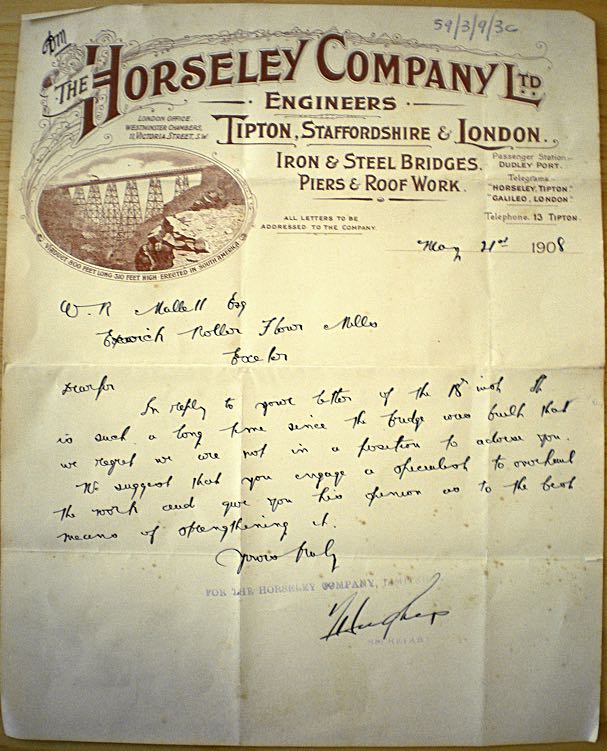 59/3/9/3c
THE HORSELEY COMPANY LTD
ENGINEERS
LONDON OFFICE.
WESTMINSTER CHAMBERS,
VICTORIA STREET, S.W.
TIPTON, STAFFORDSHIRE & LONDON.
IRON & STEEL BRIDGES.
PIERS & ROOF WORK.
Passenger Station:-
DUDLEY PORT.
Telegrams:-
"HORSELEY, TIPTON."
"GALILEO, LONDON."
Telephone. 13 TIPTON.
ALL LETTERS TO BE
ADDRESSED TO THE COMPANY
VIADUCT 800 FEET LONG 310 FEET HIGH ERECTED IN SOUTH AMERICA
May 21st 1908
W. R Mallett Esq
Exwick Roller Flour Mills
Exeter
Dear Sir
In reply to your letter of the 18th inst it
is such a long time since the bridge was built that
we regret we are not in a position to advise you.
We suggest that you engage a specialist to overhaul
the work and give you his opinion as to the best
means of strengthening it.
Yours truly
FOR THE HORSELEY COMPANY, LIMITED
SECRETARY